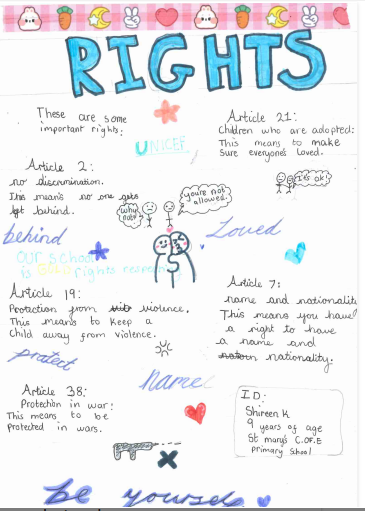 RIGHTS
These are some
important rights:
UNICEF
Article 21:
Children who are adopted:
This means to make
sure everyone's loved.
Article 2:
no discrimination.
This means no one gets
left behind.
Why not?
you're not
allowed.
It's ok!
behind
Loved
OUR SCHOOL
is GOLD rights
Article 19:
Protection from violence.
This means to keep a
Child away from violence.
protect
Article 7:
name and nationality
This means you have
a right to have
a name and
nationality.
Name
Article 38:
Protection in war:
This means to be
Protected in wars.
ID:
Shireen K
9 years of age
St mary's C.OF.E
primary School
be yourself